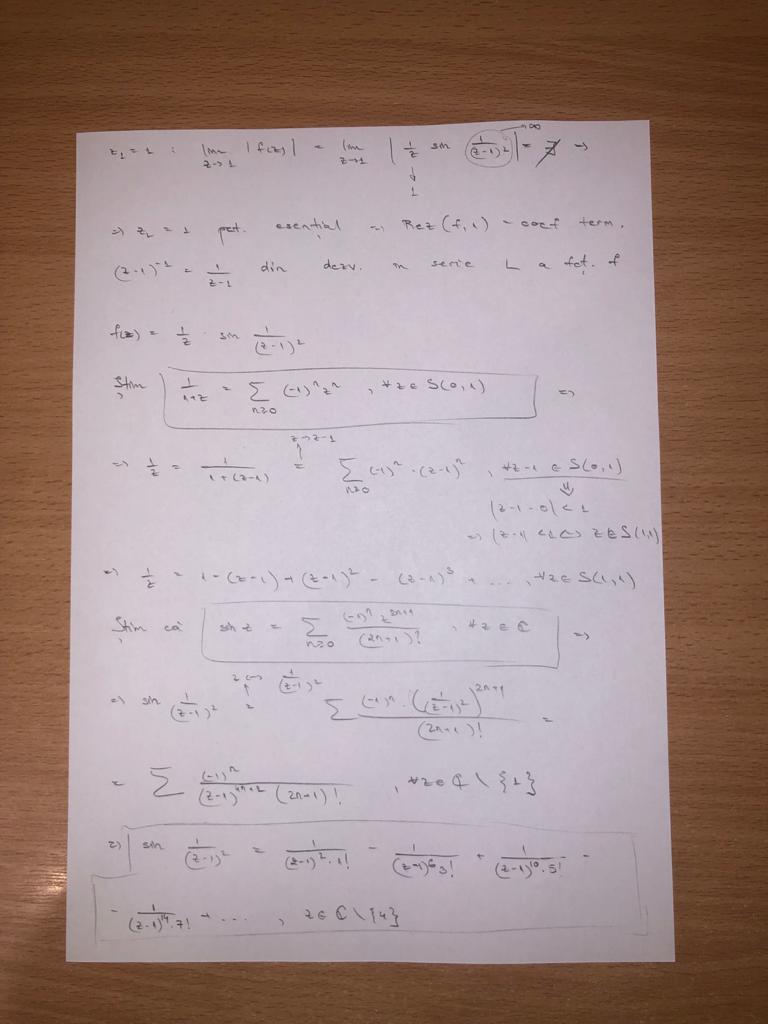 z₁ = 1 : lim_{z→1} |f(z)| = lim_{z→1} | 1/z sin 1/(z-1)² | = ∄ ⇒
↓ 1
→∞
⇒ z₁ = 1 pct. esențial ⇒ Rez (f, 1) = coef term.
(z-1)⁻¹ = 1/(z-1) din dezv. în serie L a fct. f
f(z) = 1/z · sin 1/(z-1)²
Știm 1/(1+z) = ∑_{n≥0} (-1)ⁿ zⁿ , ∀z∈ S(0,1) ⇒
z→z-1
⇒ 1/z = 1/(1+(z-1)) = ∑_{n≥0} (-1)ⁿ · (z-1)ⁿ , ∀z-1 ∈ S(0,1)
⇓
|z-1-0| < 1
⇒ |z-1| < 1 ⇔ z∈S(1,1)
⇒ 1/z = 1 - (z-1) + (z-1)² - (z-1)³ + ... , ∀z∈ S(1,1)
Știm că sin z = ∑_{n≥0} (-1)ⁿ z²ⁿ⁺¹/(2n+1)! , ∀z ∈ ℂ ⇒
z ↔ 1/(z-1)²
⇒ sin 1/(z-1)² = ∑ (-1)ⁿ · (1/(z-1)²)²ⁿ⁺¹/(2n+1)! =
= ∑ (-1)ⁿ/((z-1)⁴ⁿ⁺² (2n+1)!) , ∀z∈ ℂ \ {1}
⇒ sin 1/(z-1)² = 1/((z-1)²·1!) - 1/((z-1)⁶3!) + 1/((z-1)¹⁰·5!) -
- 1/((z-1)¹⁴·7!) + ... , z∈ ℂ \ {1}